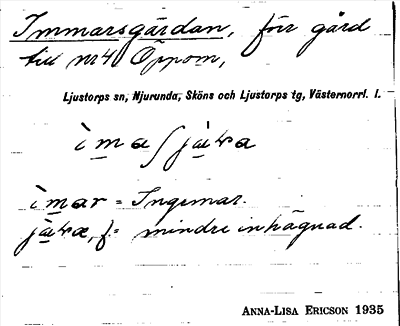 Immarsgärdan, förr gård
till nr 4 Öppom,
Ljustorps sn, Njurunda, Sköns och Ljustorps tg, Västernorrl. l.
ı̀ma
ı̀mar = Ingemar.
f. = mindre inhägnad.
ANNA-LISA ERICSON 1935